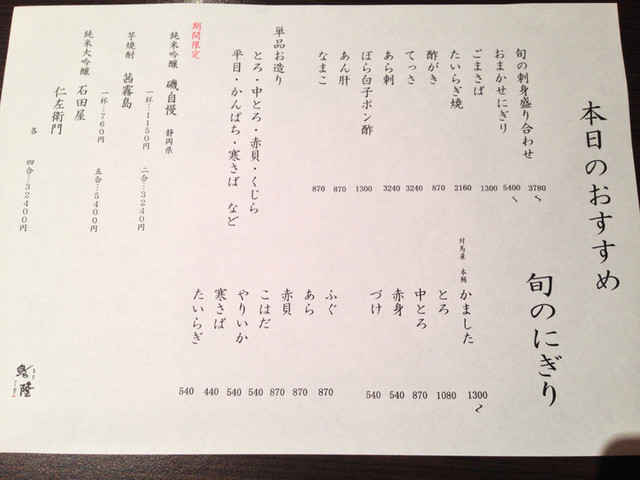 本日のおすすめ
旬の刺身盛り合わせ 3780~
おまかせにぎり 5400~
ごまさば 1300
たいらぎ焼 2160
酢がき 870
てっさ 3240
あら刺 3240
ぼら白子ポン酢 1300
あん肝 870
なまこ 870
単品お造り
とろ・中とろ・赤貝・くじら
平目・かんぱち・寒さば など
旬のにぎり
対馬産 本鮪
かました 1300~
とろ 1080
中とろ 870
赤身 540
づけ 540
ふぐ 870
あら 870
赤貝 870
こはだ 540
やりいか 540
寒さば 440
たいらぎ 540
期間限定
純米吟醸 磯自慢 静岡県
一杯…1150円 二合…3240円
芋焼酎 茜霧島
一杯…760円 五合…5400円
純米大吟醸 石田屋
仁左衛門
各 四合…32400円